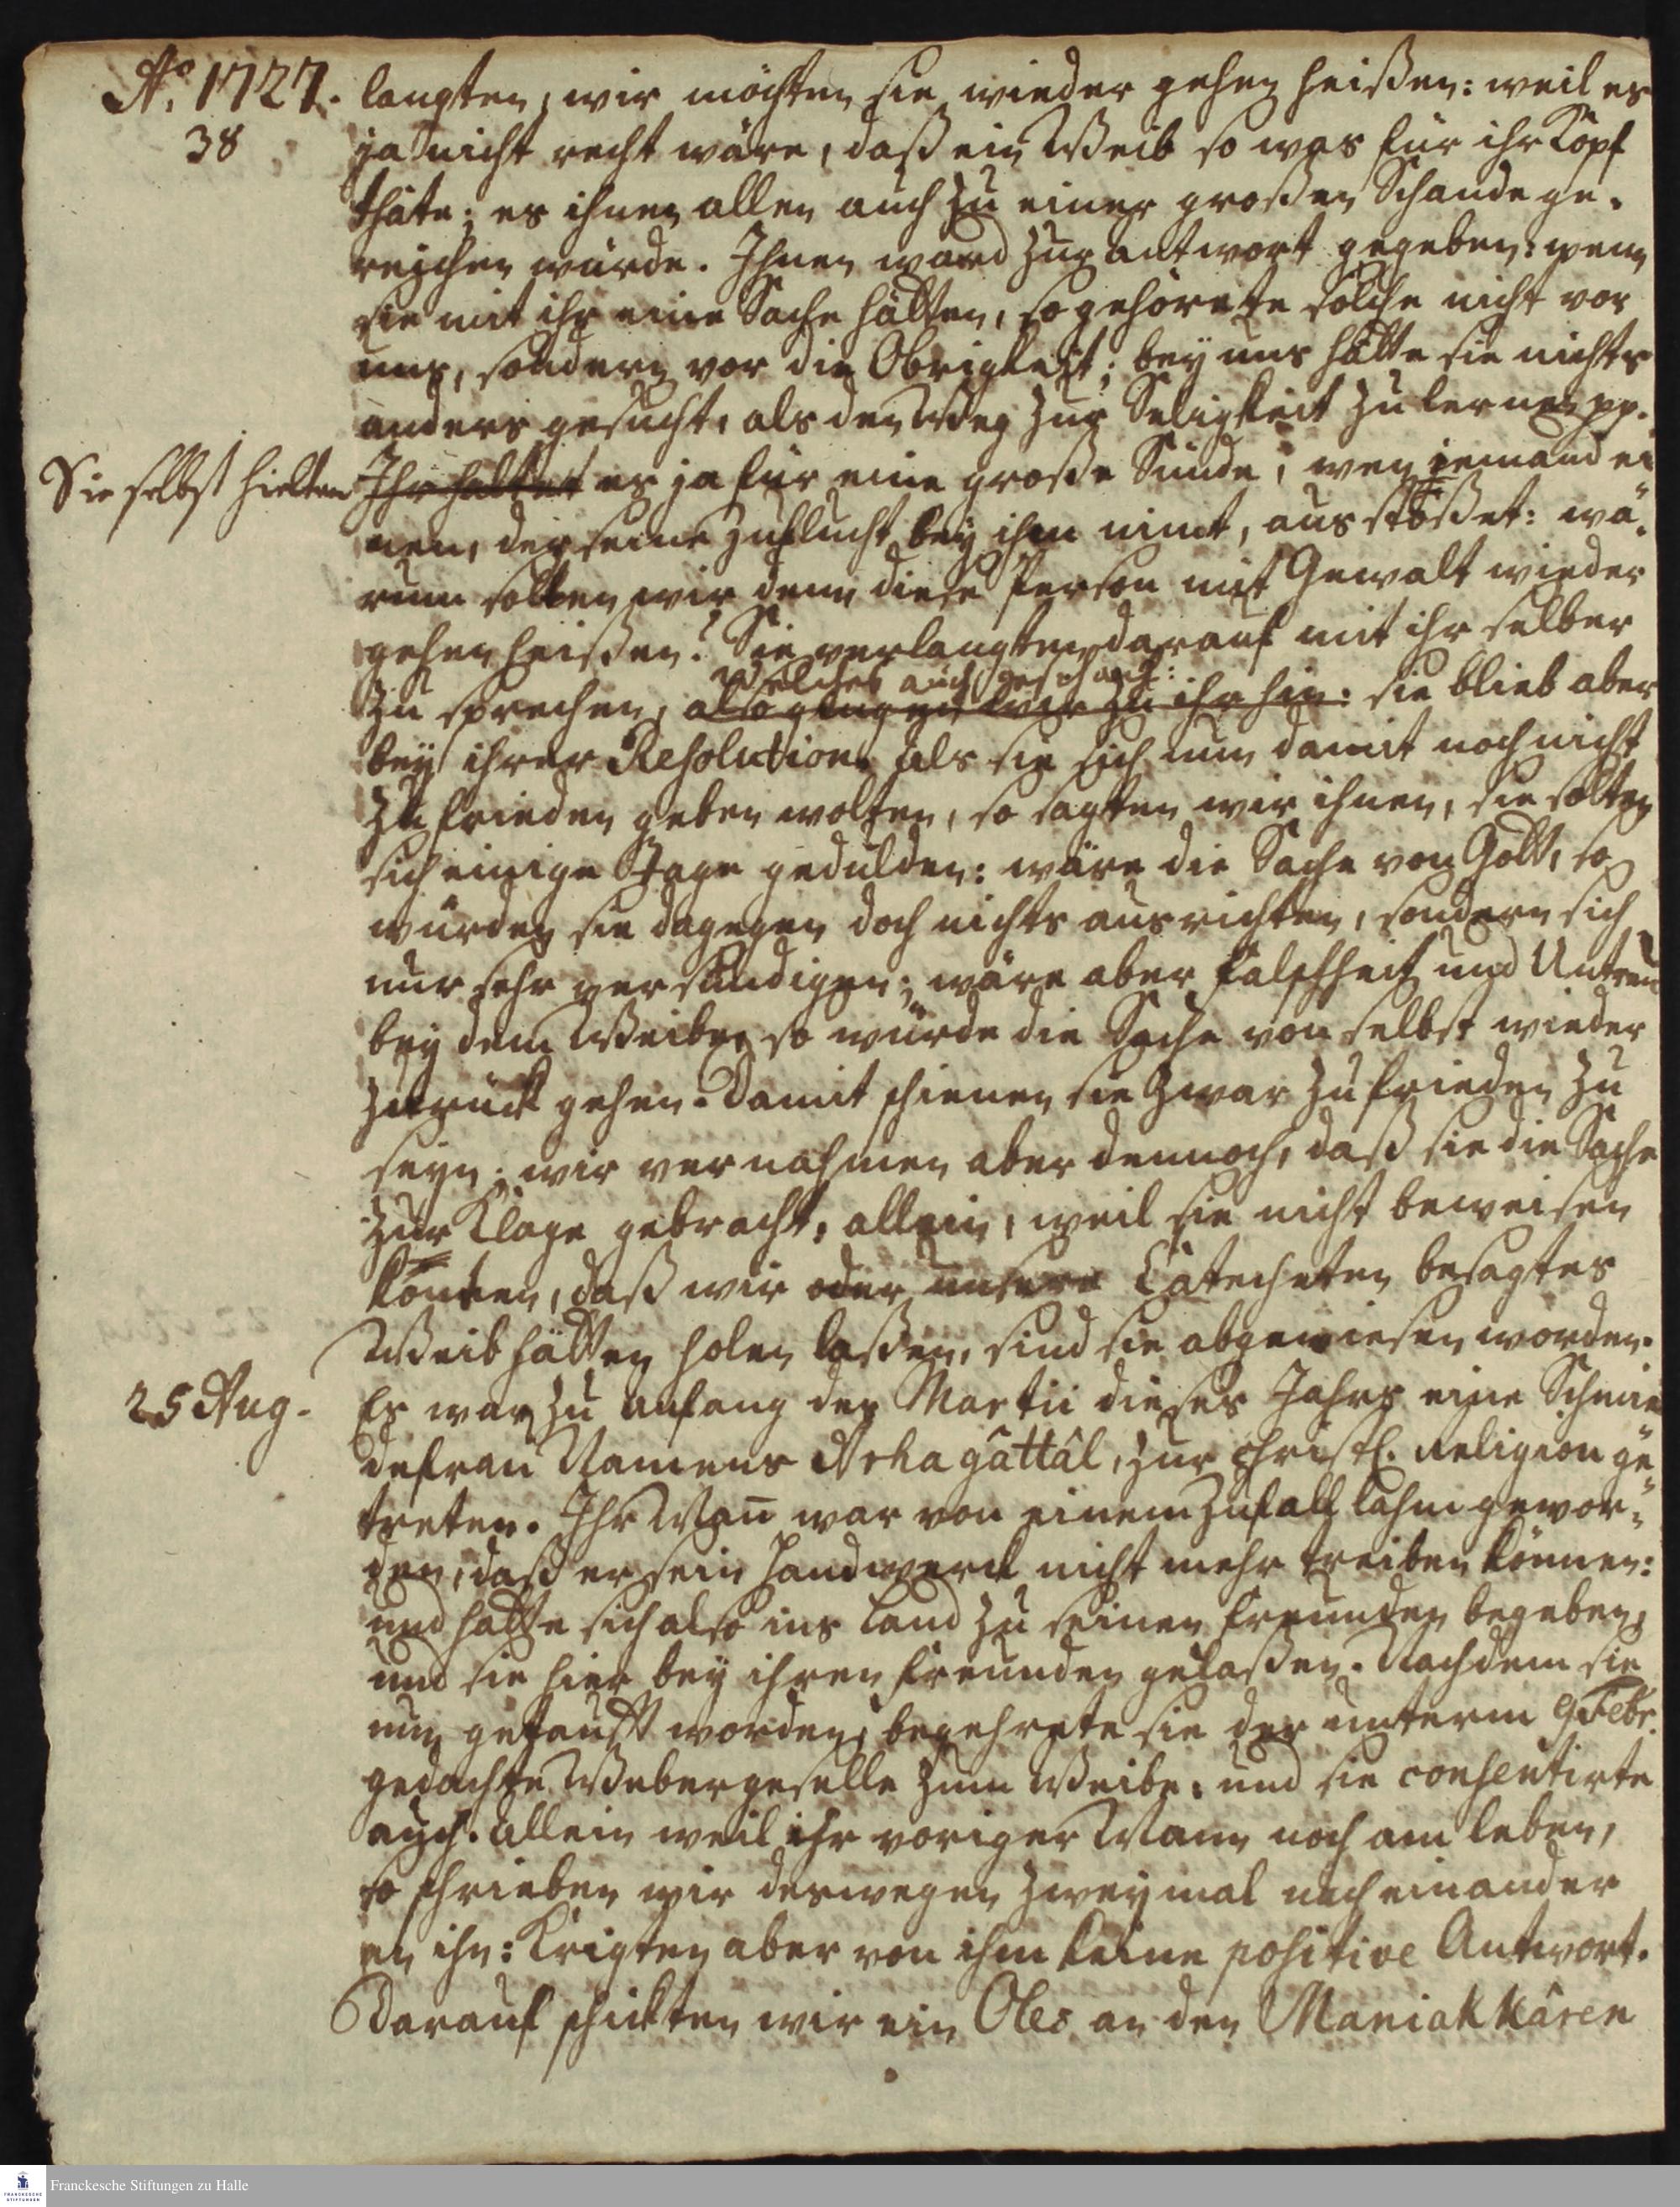 Ao. 1727.
38
langten, wir möchten sie wieder gehen heißen: weil es
ja nicht recht wäre, daß ein Weib so was für ihr Kopf
thäte; es ihnen allen auch zu einer großen Schande ge-
reichen würde. Ihnen ward zur antwort gegeben: wenn
sie mit ihr eine Sache hätten, so gehörete solche nicht vor
uns, sondern vor die Obrigkeit; bey uns hätte sie nichts
anders gesucht, als den Weg zur Seligkeit zu lernen pp.
Sie selbst hielten
Ihr haltet es ja für eine große Sünde, wen jemand ei
nen, der seine Zuflucht bey ihm nimt, ausstößet: wa-
rum solten wir denn diese Person mit Gewalt wieder
gehen heißen? Sie verlangten darauf mit ihr selber
welches auch geschach:
zu sprechen, also gingen wir zu ihr hin: sie blieb aber
bey ihrer Resolution. Als sie sich nun damit noch nicht
zufrieden geben wolten, so sagten wir ihnen, sie solten
sich einige Tage gedulden: wäre die Sache von Gott, so
würden sie dagegen doch nichts ausrichten, sondern sich
nur sehr versündigen; wäre aber falschheit und Untreu
bey dem Weibe, so würde die Sache von selbst wieder
zurück gehen. Damit schienen sie zwar zufrieden zu
seyn; wir vernahmen aber dennoch, daß sie die Sache
zur Klage gebracht, allein, weil sie nicht beweisen
konten, daß wir oder unsere Catecheten besagtes
Weib hätten holen laßen, sind sie abgewiesen worden.
25 Aug.
Es war zu anfang des Martii dieses Jahrs eine Schmie
defrau Namens Arhagâttâl, zur christl. Religion ge-
treten. Ihr Mañ war von einem Zufall lahm gewor-
den, daß er sein Handwerck nicht mehr treiben können:
und hatte sich also ins Land zu seinen freunden begeben,
und sie hier bey ihren freunden gelaßen. Nachdem sie
nun getaufft worden, begehrete sie der unterm 9 Febr.
gedachte Webergeselle zum Weibe: und sie consentirte
auch. Allein weil ihr voriger Mann noch am leben,
so schrieben wir deswegen zweymal nach einander
an ihn: krigten aber von ihm keine positive Antwort.
Darauf schickten wir ein Oles an den Maniakkâren
Franckesche Stiftungen zu Halle
FRANCKESCHE
STIFTUNGEN